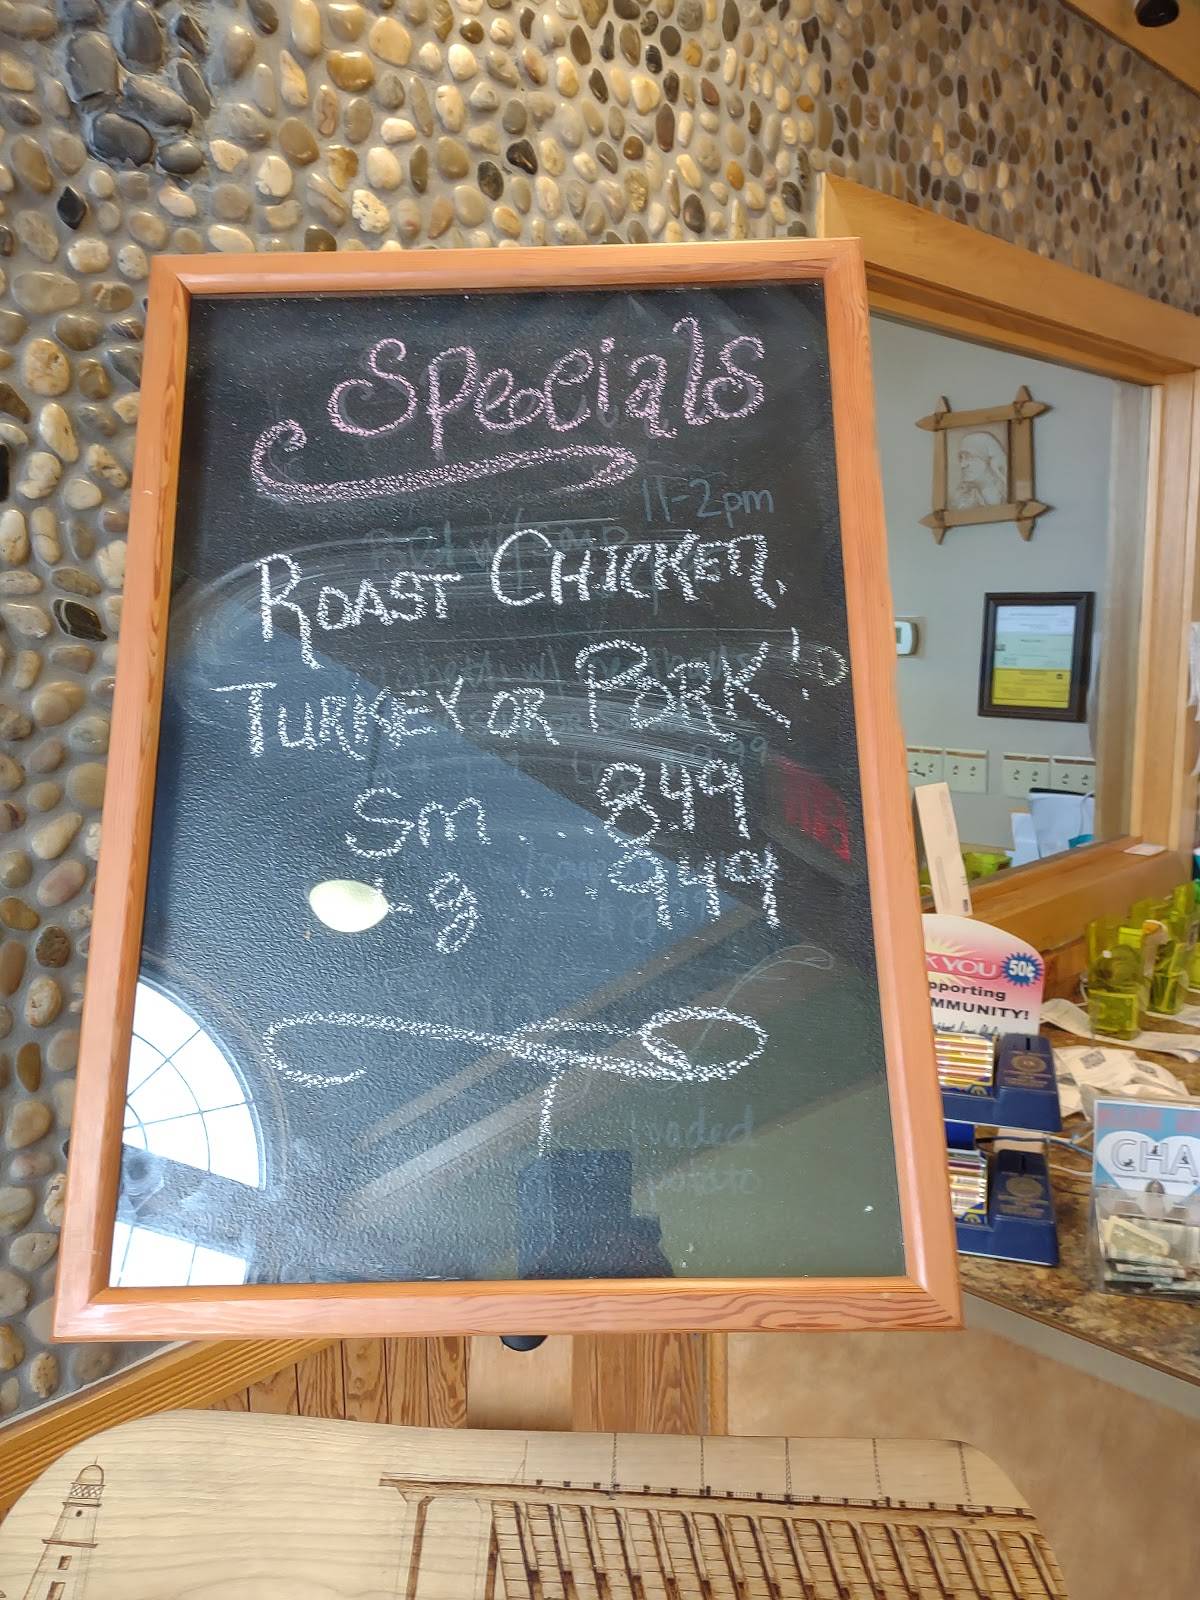 Specials
11-2pm
ROAST CHICKEN,
TURKEY OR PORK!
Sm ..... 8.49
Lg ..... 9.49
loaded
potato
K YOU 50¢
pporting
MMUNITY!
CHA